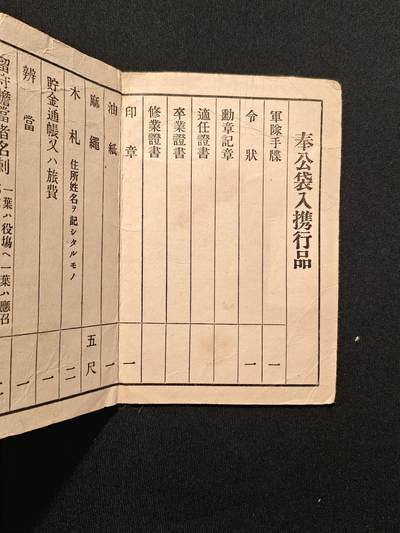 奉公袋入携行品
軍隊手牒 一
令狀 一
勳章記章
適任證書
卒業證書
修業證書
印章 一
油紙 一
麻繩 五尺
木札 住所姓名ヲ記シタルモノ 二
貯金通帳又ハ旅費 一
辨當 一
留守擔當者名刺 一葉ハ役場ヘ一葉ハ應召